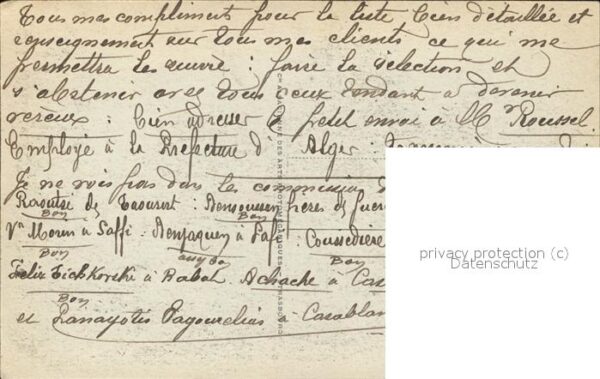 Tous mes compliment pour la liste bien détaillée et
renseignement sur tous mes clients ce qui me
permettra les œuvre : faire la sélection et
s'abstener avec tous ceux tendant a devenir
véreux : Bien adresser le petit envoi à Mr Roussel
Employé à la Prefecture d'Alger :
Je ne vois pas dans les commission
Raoutsi de Taourirt : Bensoussen frères de Guer
Bon Bon
Vve Morin à Saffi : Benjaquen à Saf : Coussedière
Bon assez bon Bon
Felix Tickhorski à Rabat. Achache à Cas
Bon
et Panayotis Pagourelias à Casablan
privacy protection (c)
Datenschutz